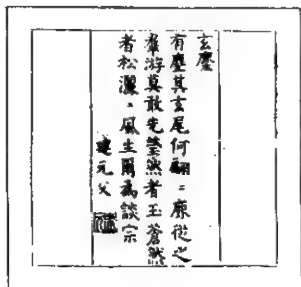 玄麈
有麈其玄尾何翩〻從之
羣游莫敢先瑩然者玉蒼然
者松灑〻風生爾為談宗
建元父